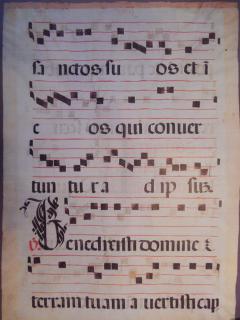 sa nctos su os et i
c os qui conuer
tun tu r a d ip suz
Benedixisti domine t
terram tuam a uertisti cap